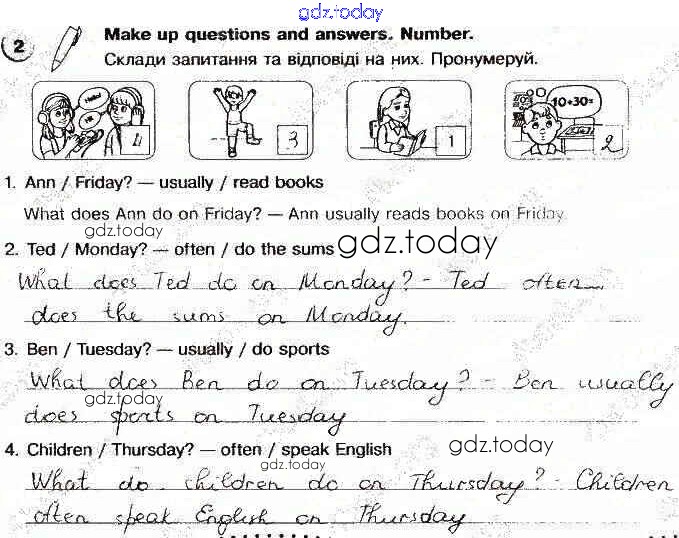 gdz.today
2 Make up questions and answers. Number.
Склади запитання та відповіді на них. Пронумеруй.
Hello! Hi 4 3 1 10+30= 2
1. Ann / Friday? — usually / read books
What does Ann do on Friday? — Ann usually reads books on Friday
gdz.today
2. Ted / Monday? — often / do the sums gdz.today
What does Ted do on Monday? - Ted often
does the sums on Monday.
3. Ben / Tuesday? — usually / do sports
What does Ben do on Tuesday? - Ben usually
gdz.today
does sports on Tuesday
4. Children / Thursday? — often / speak English gdz.today
gdz.today
What do children do on Thursday? - Children
often speak English on Thursday